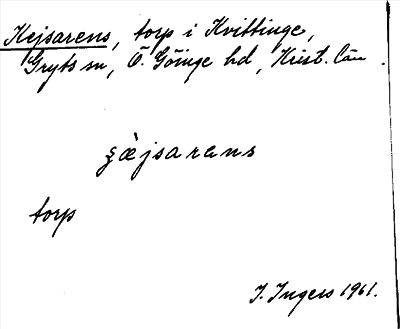 Kejsarens, torp i Kvittinge,
Gryts sn, Ö. Göinge hd, Krist. län.
ʂæ̀jsarɐns
torp
I. Ingers 1961.